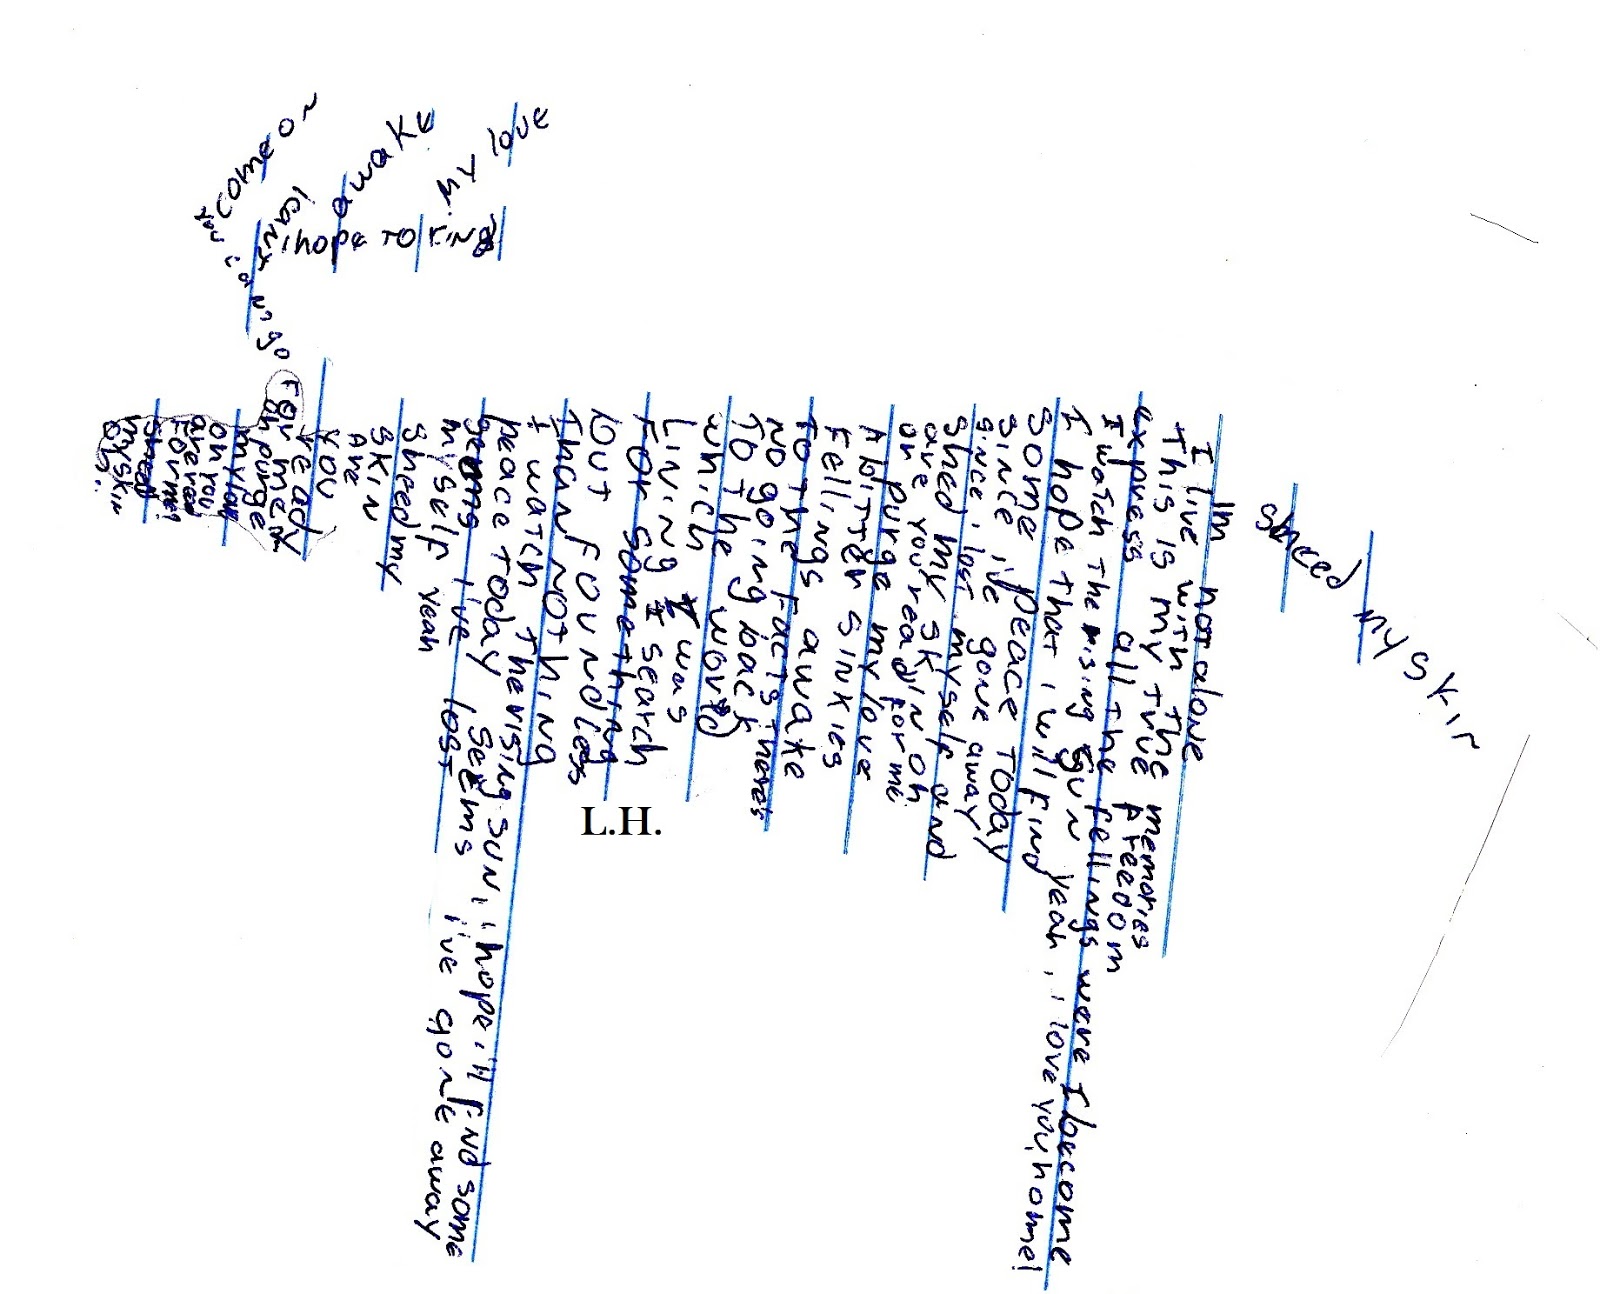 sheed my skin
Im not alone
I live with the memories
This is my true freedom
express all the fellings were I become
I watch the rising sun yeah, i love you, home!
I hope that i will find
some peace today
since ive gone away
since i lost myself and
shed my skin oh
are you ready for me
oh purge my love
A bitter sinkies
Fellings awake
To the facts theres
No going back
To the world
which I was
Living I search
For something
but foundless
Than nothing
I watch the rising sun, i hope i'll find some
peace today seems i've gone away
seems i've lost
myself yeah
sheed my
skin
Are
you
ready
for me
oh purge
my love
oh you
are ready
for me!
sheed
my skin
oh..
come on
i can't
awake
my love
i hope to ring